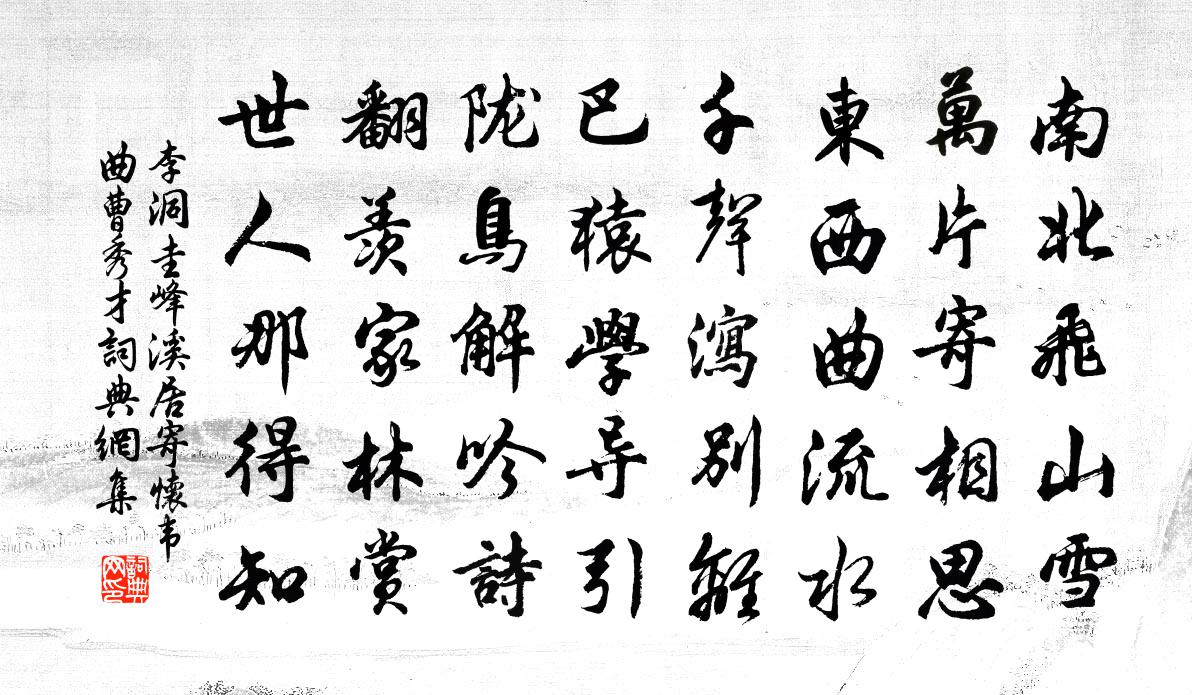 南北飛山雪
萬片寄相思
東西曲流水
千聲瀉別離
巴猿學导引
陇鳥解吟詩
翻羨家林賞
世人那得知
李洞圭峰溪居寄懷韦
曲曹秀才詞典網集
詞典网印